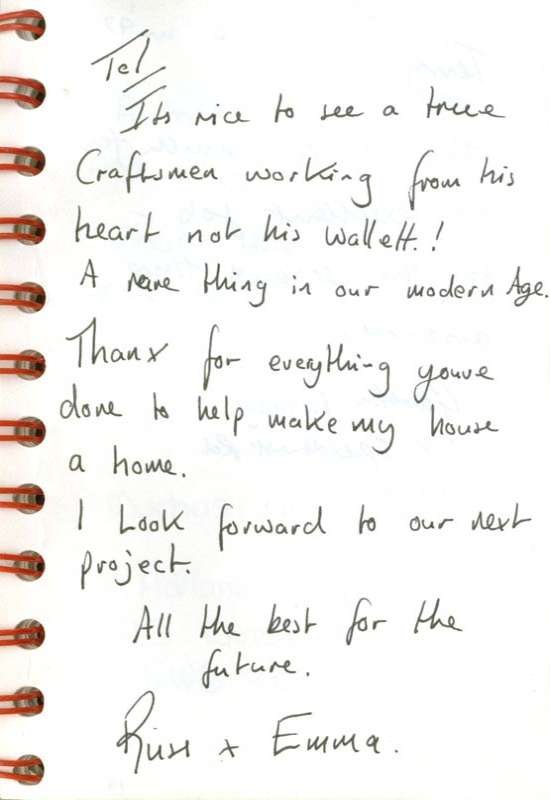 Tel
Its nice to see a true
Craftsmen working from his
heart not his wallett.!
A rare thing in our modern Age.
Thanx for everything youve
done to help make my house
a home.
I Look forward to our next
project.
All the best for the
future.
Russ + Emma.